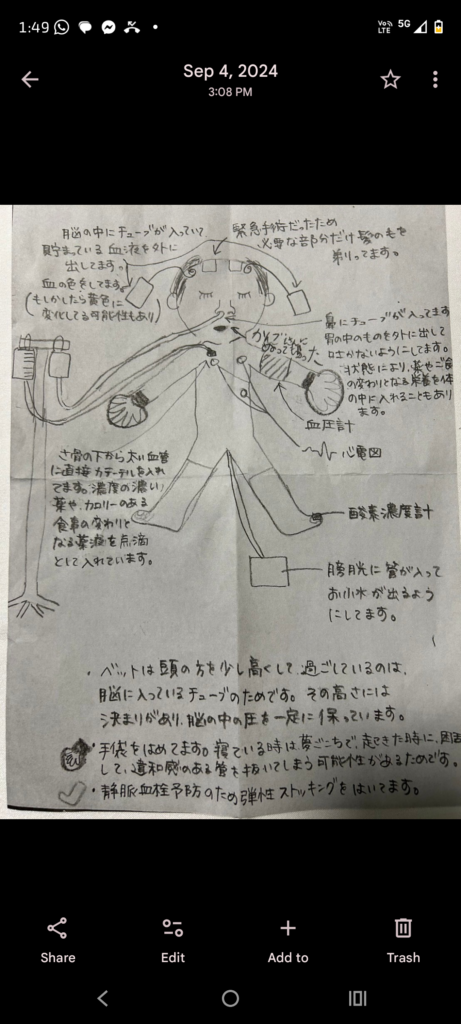 1:49
Vo))
LTE
5G
Sep 4, 2024
3:08 PM
脳の中にチューブが入っていて
貯まっている血液を外に
出してます。
血の色をしてます
(もしかしたら黄色に
変化してる可能性もあり)
緊急手術だったため
必要な部分だけ髪のもを
剃りってます。
鼻にチューブが入ってます
胃の中のものを外に出して
はかないようにしてます。
状態により、薬やご飯
の変わりとなる栄養を体
の中に入れることもあり
ます。
血圧計
心電図
さ骨の下から太い血管
に直接カテーテルを入れ
てます。濃度の濃い
薬や、カロリーのある
食事の変わりと
なる薬液を点滴
として入れています。
酸素濃度計
膀胱に管が入って
お小水が出るよう
にしてます。
・ベットは頭の方を少し高くして、過ごしているのは、
脳に入っているチューブのためです。その高さには
決まりがあり、脳の中の圧を一定に保っています。
・手袋をはめてます。寝ている時は夢ごこちで、起きた時に、
して、違和感のある管を抜いてしまう可能性があるためです。
・静脈血栓予防のため弾性ストッキングをはいてます。
Share
Edit
Add to
Trash